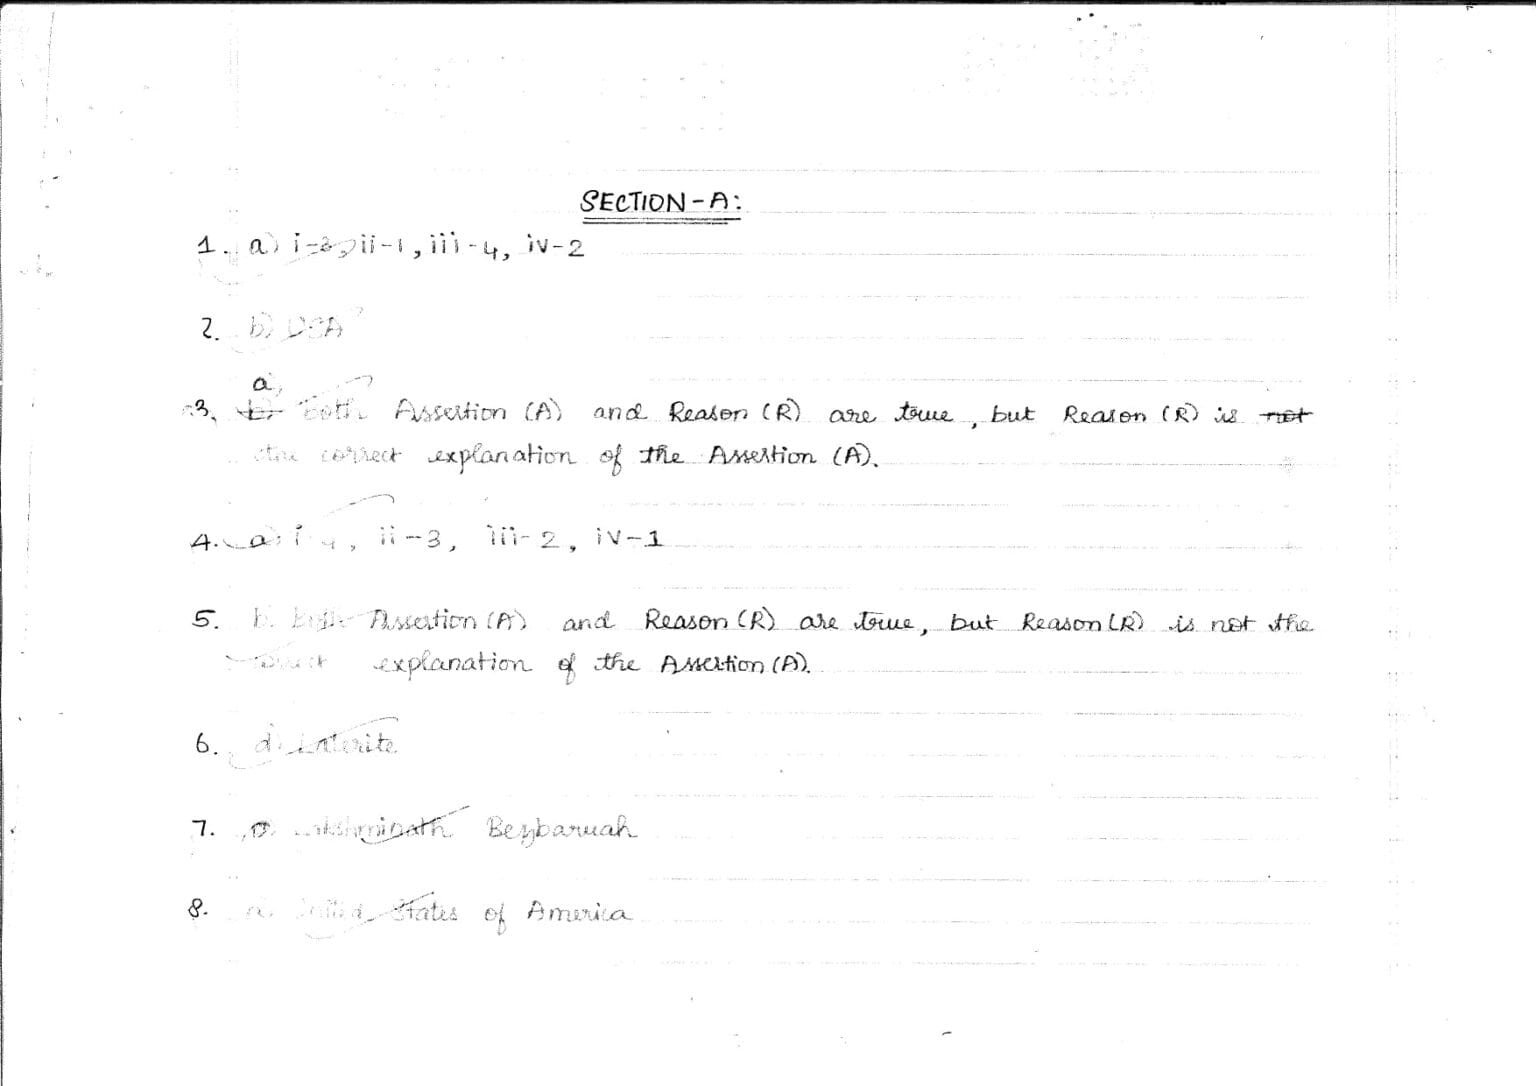 SECTION-A:
1. a) i-3, ii-1, iii-4, iv-2
2. b) DCA
a)
3. b) Both Assertion (A) and Reason (R) are true, but Reason (R) is not
the correct explanation of the Assertion (A).
4. a) i-4, ii-3, iii-2, iv-1
5. b. Both Assertion (A) and Reason (R) are true, but Reason (R) is not the
correct explanation of the Assertion (A).
6. d. Laterite
7. Lakshminath Bezbaruah
8. United States of America